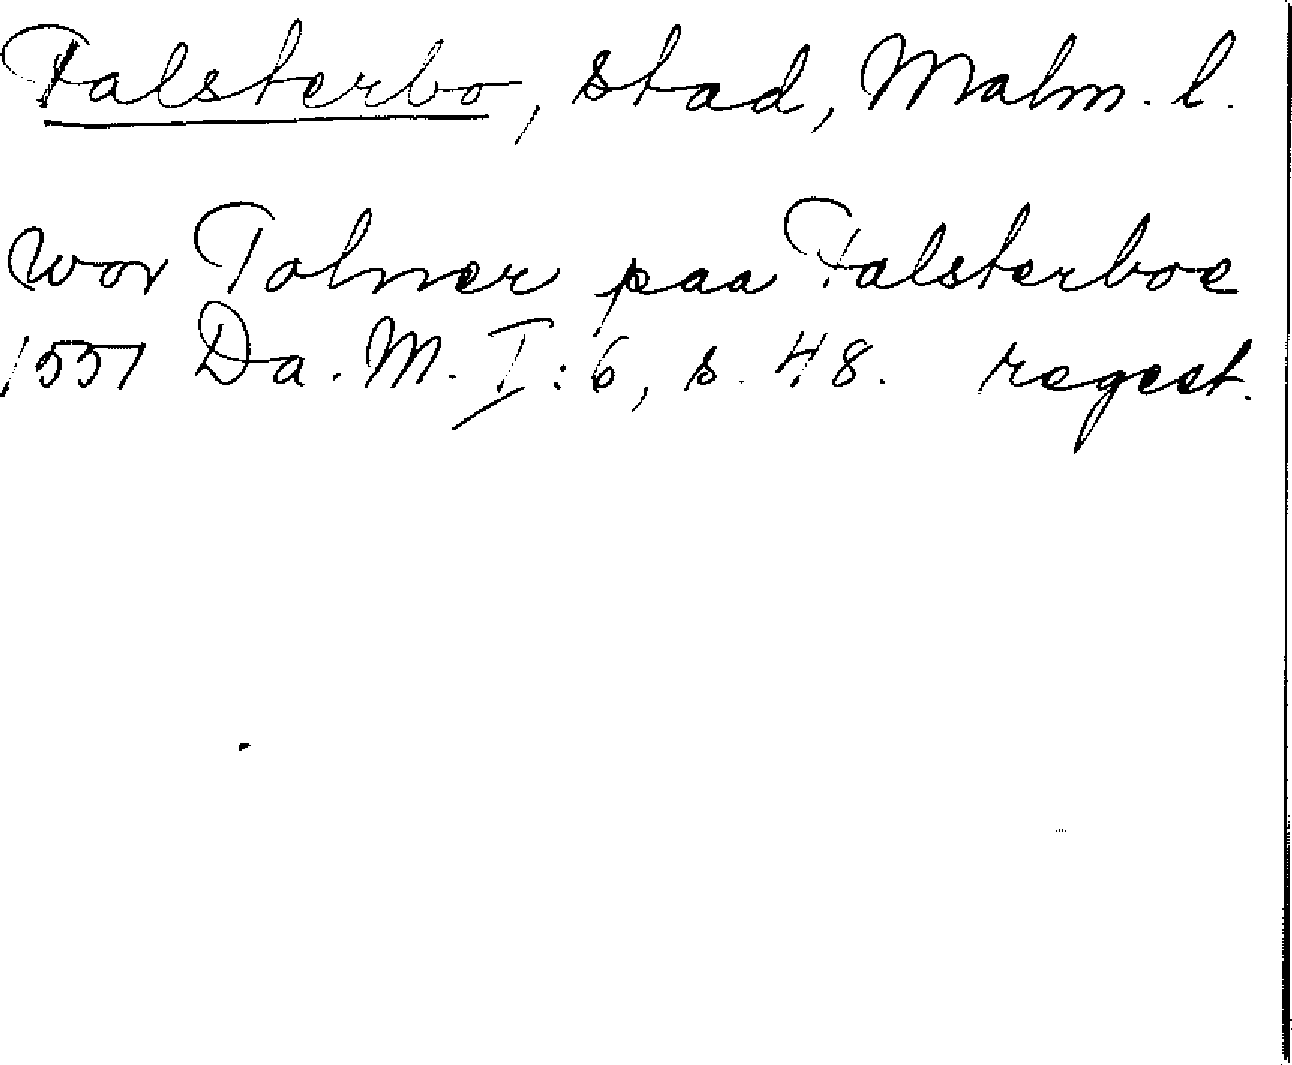 Falsterbo, stad, Malm. l.
wor Tolner paa Falsterboe
1551 Da. M. I:6, s. 48. regest.